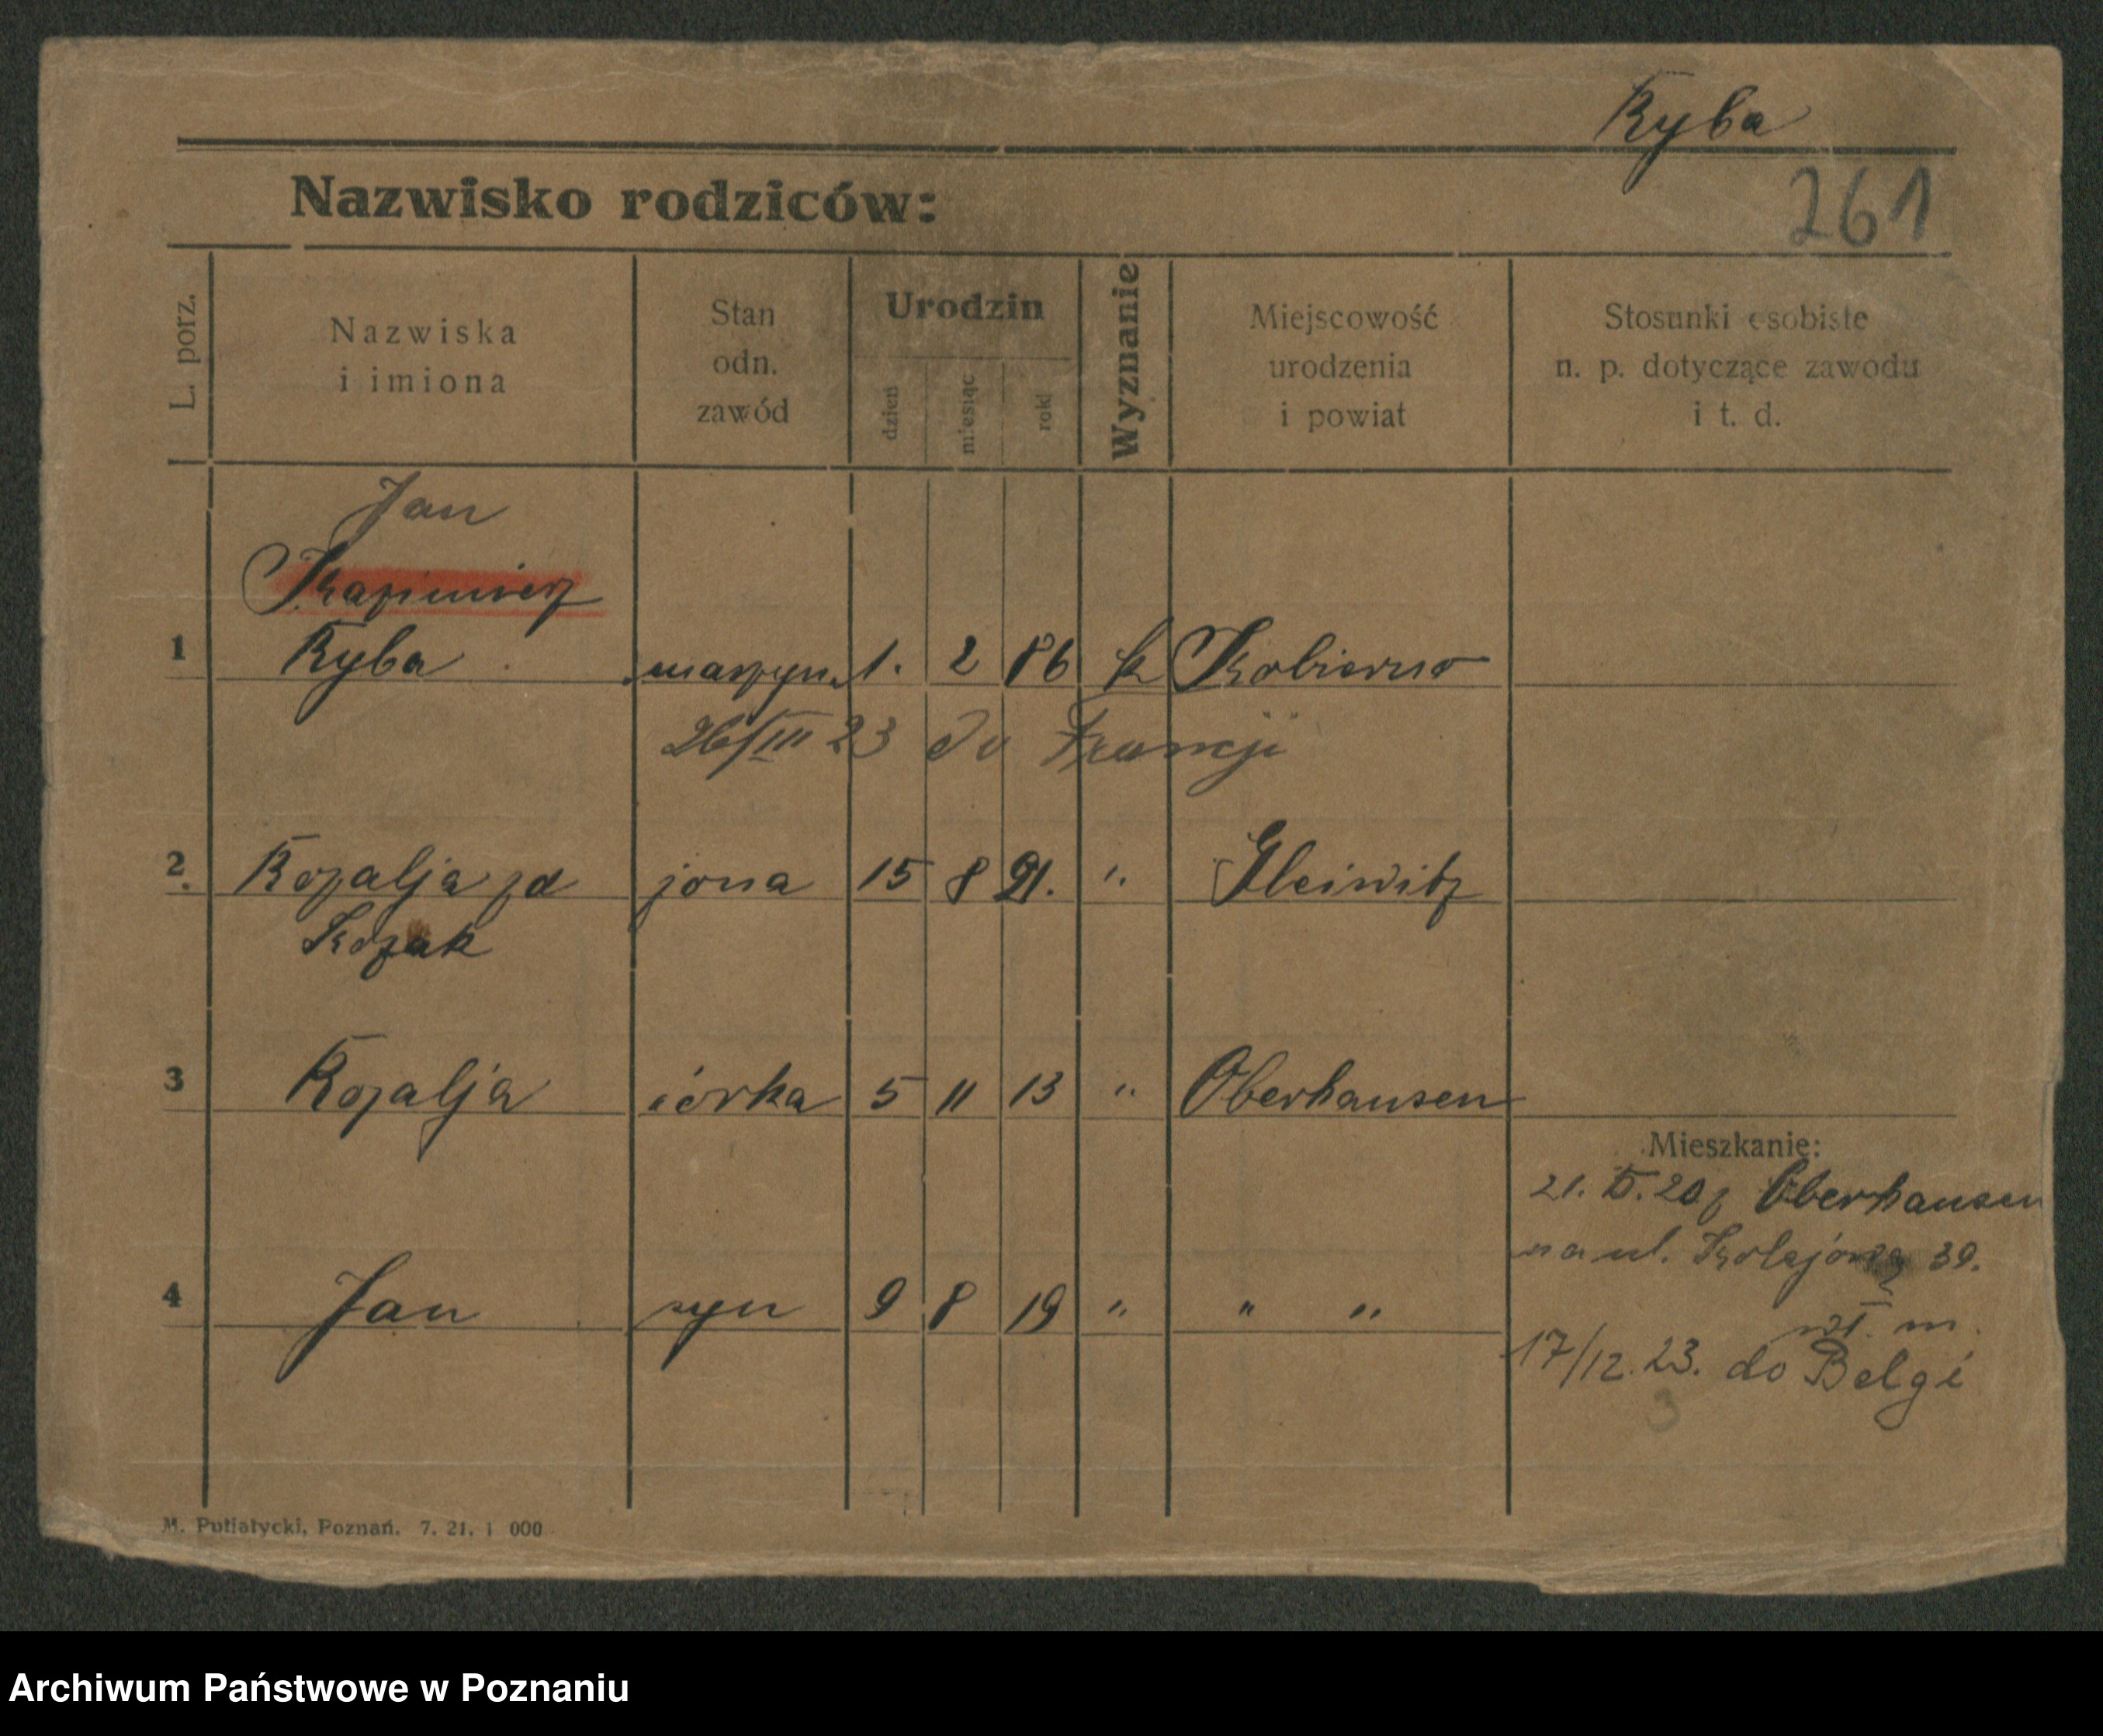 Ryba
261
Nazwisko rodziców:
L. porz.
Nazwiska i imiona
Stan odn. zawód
Urodzin
dzień
miesiąc
rok
Wyznanie
Miejscowość urodzenia i powiat
Stosunki osobiste n. p. dotyczące zawodu i t. d.
Jan
Kazimierz
1 Ryba maszyn. 1. 2 86 k Kobierno
26/III 23 do Francji
2. Rozalja zd żona 15 8 91. " Gleiwitz
Kozak
3 Rozalja córka 5 11 13 " Oberhausen
Mieszkanie:
21. 20 z Oberhausen
na ul. Kolejową 39.
4 Jan syn 9 8 19 " " "
wł. m.
17/12.23. do Belgi
3
M. Putiatycki, Poznań. 7. 21. 1 000
Archiwum Państwowe w Poznaniu